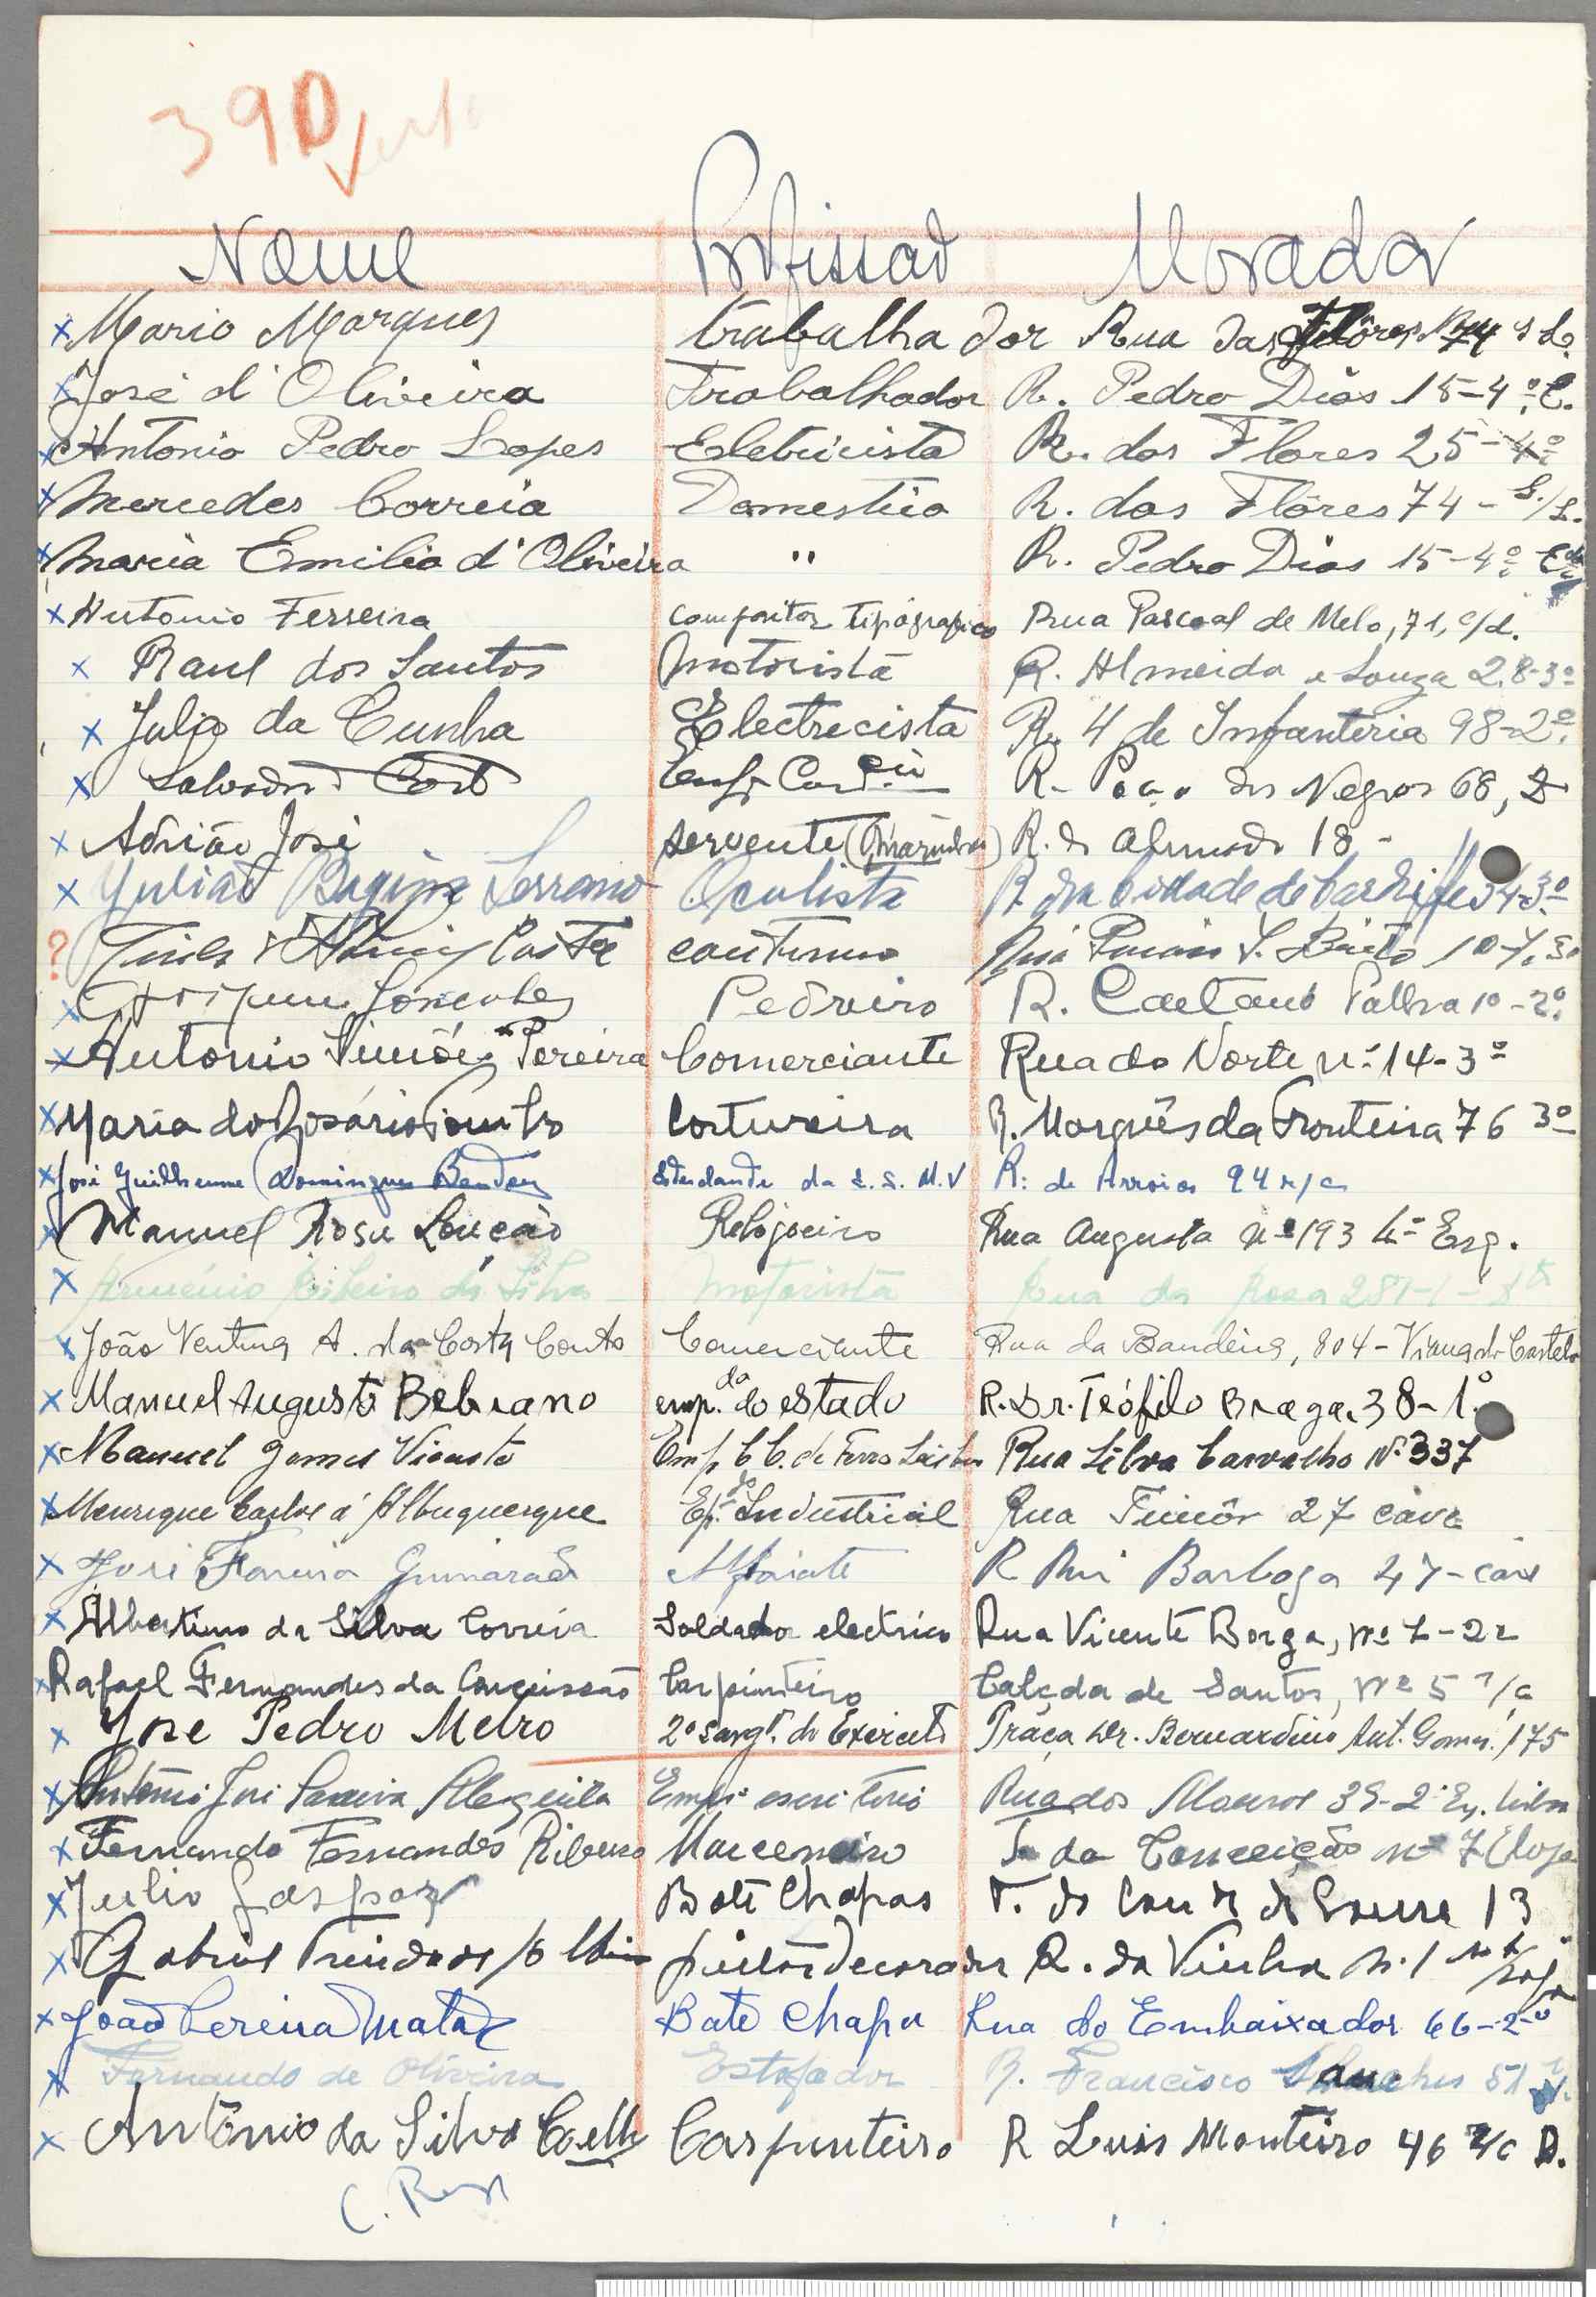 390
Nome Profissão Morada
x Mario Marques trabalhador Rua das Flôres 74 s L.
x José d'Oliveira Trabalhador R. Pedro Dias 15-4º E.
x Antonio Pedro Lopes Eletricista R. das Flores 25-4º
x Mercedes Correia Domestica R. das Flôres 74 - S./L.
x Maria Emilia d'Oliveira " R. Pedro Dias 15-4º
x Antonio Ferreira compositor tipógrafico Rua Pascoal de Melo, 71, c/d.
x Raul dos Santos Motorista R. Almeida e Souza 28-3º
x Julio da Cunha Electrecista R. 4 de Infanteria 98-2º
x Salvador R. Poço dos Negros 68, 2
x Adrião José servente R. de 18 -
x Julião Serrano Oculista R. da Cidade de Cardiff 34-3º
? Costa continuo
x Pedreiro R. Caetano Palha 10-2º
x Antonio Simões Pereira Comerciante Rua do Norte nº 14-3º
x Maria do Rosário Costureira R. Marquês da Fronteira 76 3º
x José Guilherme Domingues Estudante da E.S.M.V R: de Arroios 94 r/c
x Manuel Rosa Loução Relojoeiro Rua Augusta nº 193 4º Esq.
x Arménio Ribeiro da Silva Motorista Rua da Rosa 281-1-
x João Ventura A. da Costa Couto Comerciante Rua da Bandeira, 804 - Viana do Castelo
x Manuel Augusto Bebiano emp. do estado R. Dr. Teófilo Braga, 38-1º
x Manuel Gomes Vicente Emp. C. de Ferro Rua Silva Carvalho Nº 337
x Henrique Carlos d'Albuquerque Industrial Rua Timôr 27 cave
x José Guimarães Alfaiate R Rui Barbosa 47-cave
x Albertino da Silva Correia Soldador electrico Rua Vicente Borga, nº 7-2º
x Rafael Fernandes da Conceissão Carpinteiro Calçda de Santos, nº 5 r/c
x José Pedro Melro 2º sargt. do Exercito Praça Dr. Bernardino Ant. Gomes. 175
x António José escritorio Rua dos
x Fernando Fernandes Ribeiro Marceneiro T. da Conceição nº 7 (loja
x Julio Gaspar Bate Chapas T. do Conde de 13
x Gabriel Trindade pintor Decorador R. da Vinha n. 1
x João Pereira Mata Bate Chapa Rua do Embaixador 66-2º
x Fernando de Oliveira Estofador R. Francisco Sanches 51
x António da Silva Coelho Carpinteiro R Luis Monteiro 46 r/c D.